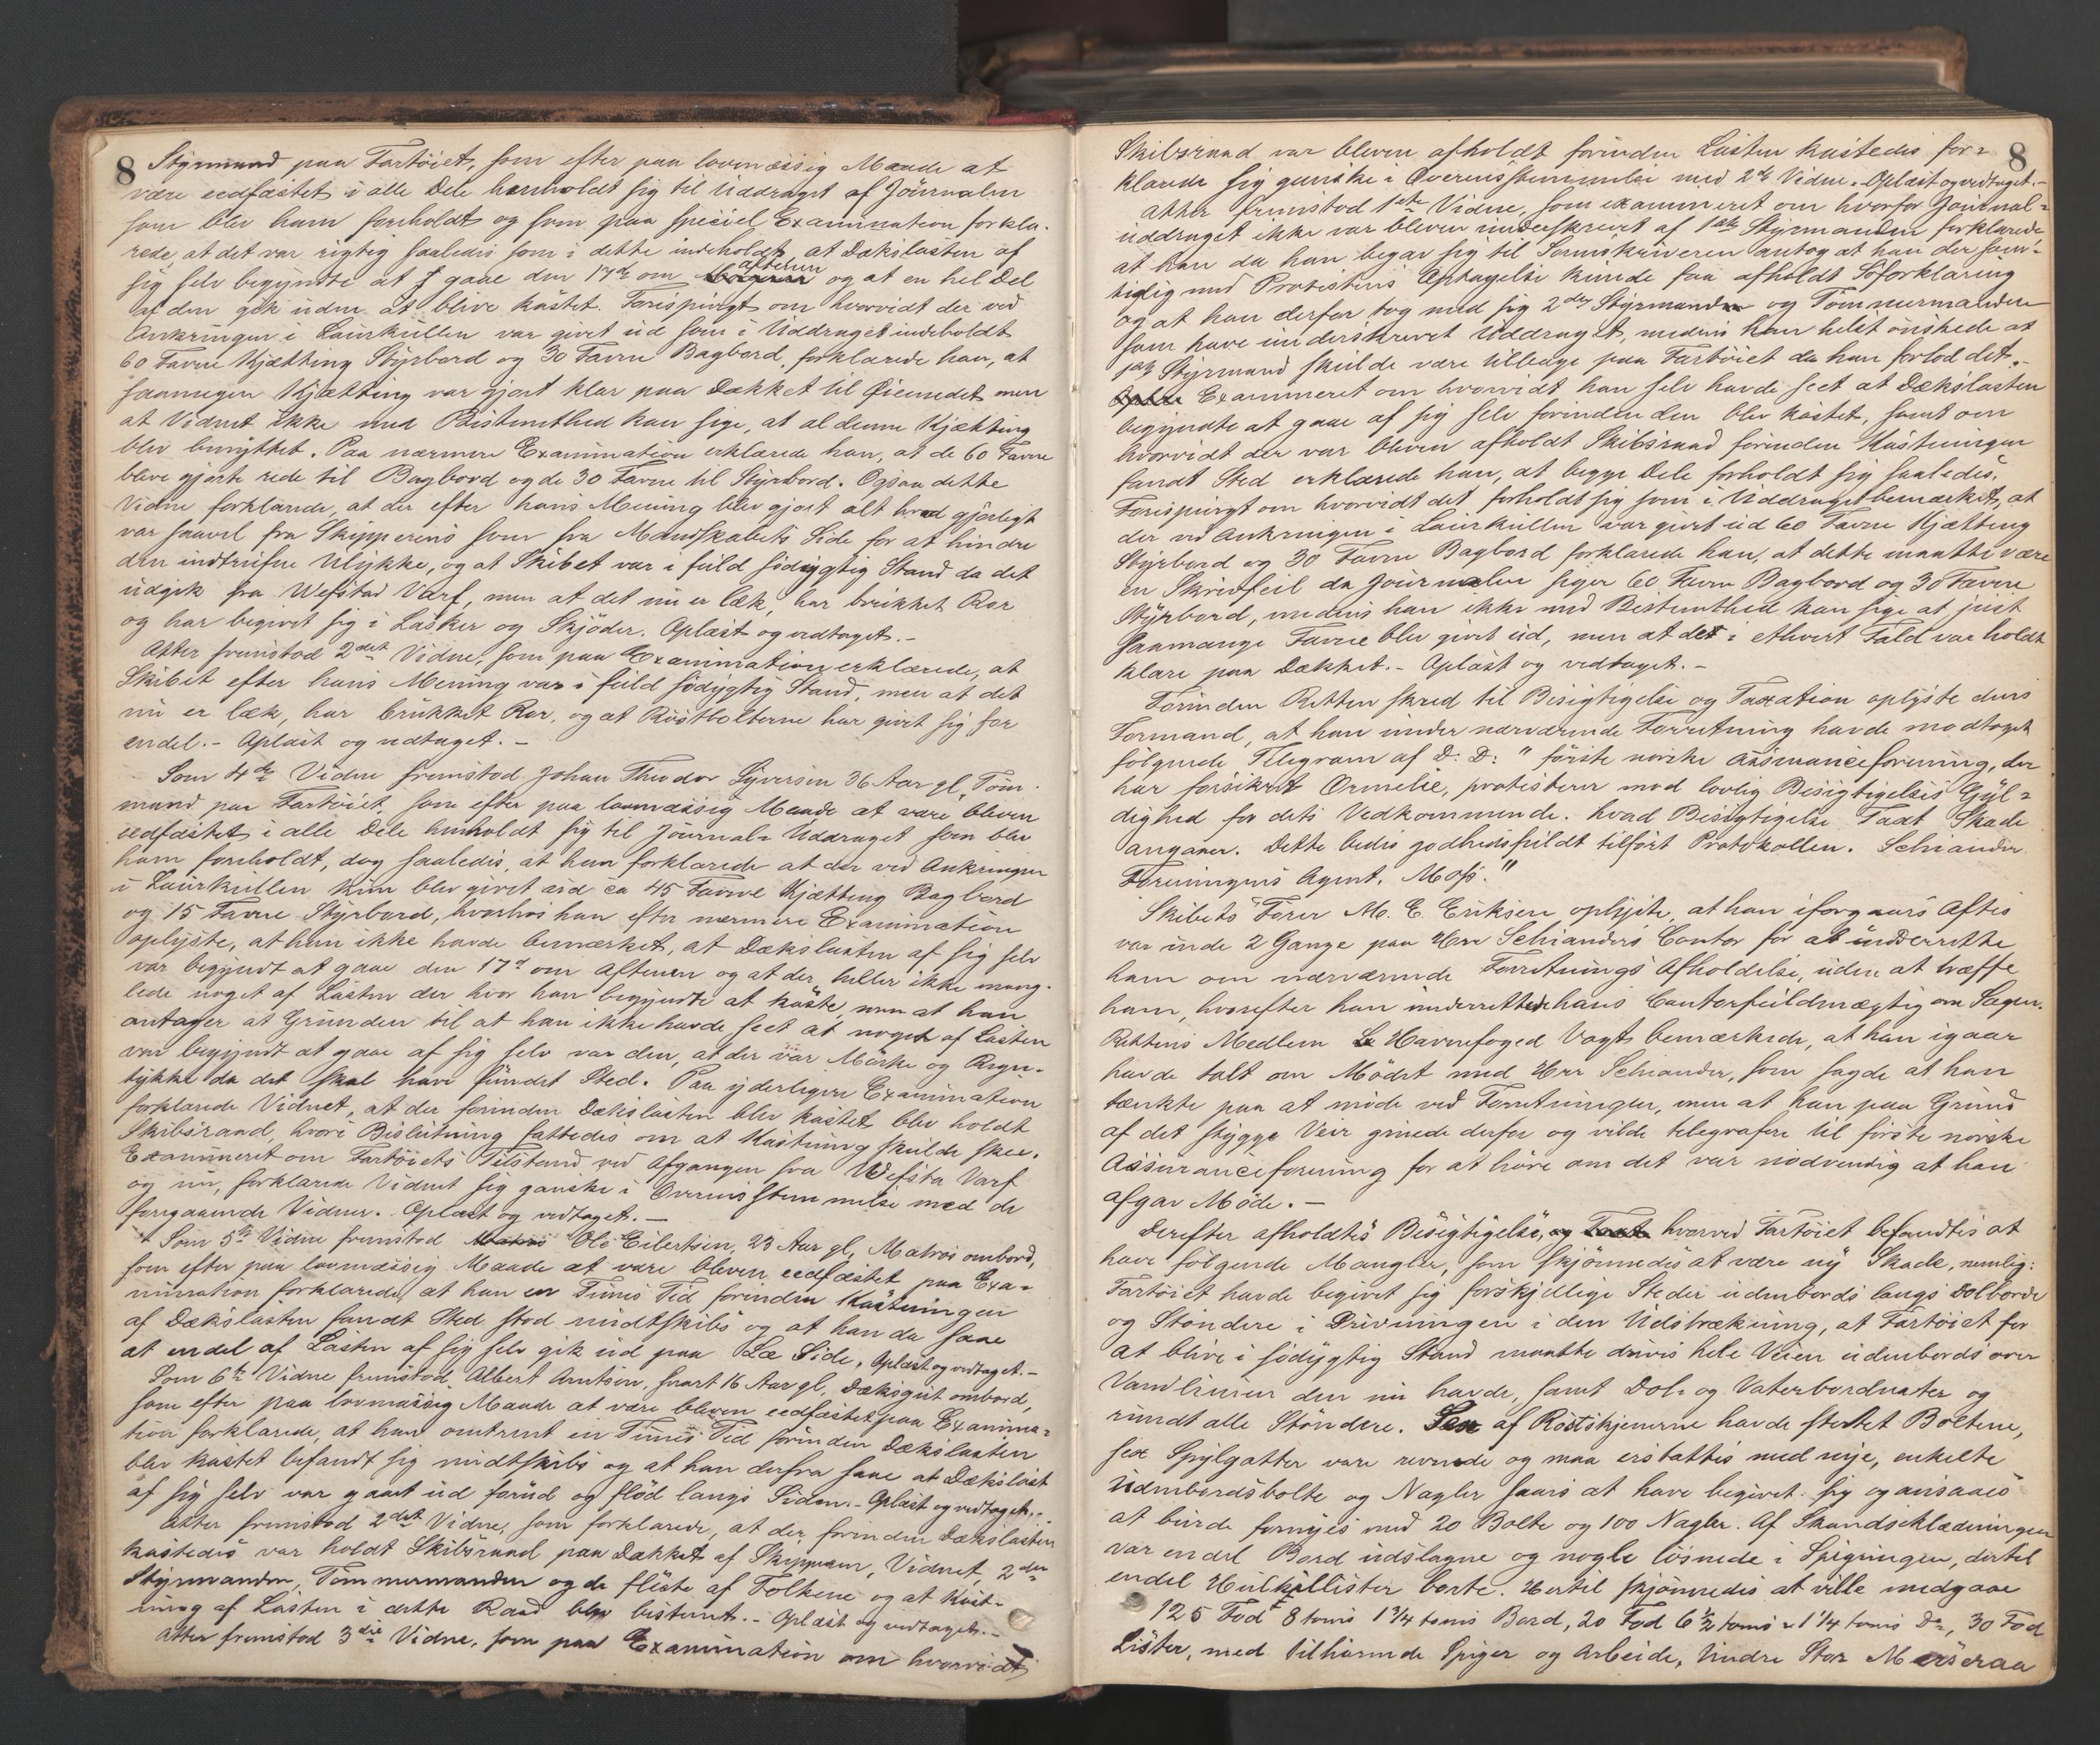 8
Styrmand paa Fartöiet, som efter paa lovmæssig Maade at
være eedfæstet i alle Dele henholdt sig til Uddraget af Journalen
som blev ham foreholdt og som paa speciel Examination forkla-
rede, at det var rigtig saaledes som i dette indeholdt, at Dækslasten af
sig selv begyndte at gaae den 17de om aftenen og at en hel Del
af den gik uden at blive kastet. Forespurgt om hvorvidt der ved
Ankringen i Laurkullen var givet ud som i Uddraget indeholdt
60 Favne Kjætting Styrbord og 30 Favne Bagbord, forklarede han, at
saamegen Kjætting var gjort klar paa Dækket til Öiemedet men
at Vidnet ikke med Bestemthed kan sige, at al denne Kjætting
blev benyttet. Paa nærmere Examination erklærede han, at de 60 Favne
bleve gjorte rede til Bagbord og de 30 Favne til Styrbord. Ogsaa dette
Vidne forklarede, at der efter hans Mening blev gjort alt hvad gjörligt
var saavel fra Skipperens som fra Mandskabets Side for at hindre
den indtrufne Ulykke, og at Skibet var i fuld södygtig Stand da det
udgik fra Wefstad Varf, men at det nu er læk, har brækket Ror
og har begivet sig i Lasker og Skjöder. Oplæst og vedtaget.-
Atter fremstod 2det Vidne, som paa Examination erklærede, at
Skibet efter hans Mening var i fuld södygtig Stand, men at det
nu er læk, har brækket Ror, og at Röstbolterne har givet sig for
endel.- Oplæst og vedtaget.-
Som 4de Vidne fremstod Johan Theodor Syversen 36 Aar gl, Töm-
mermand paa Fartöiet som efter paa lovmæssig Maade at være bleven
eedfæstet i alle Dele henholdt sig til Journal-Uddraget som blev
ham foreholdt, dog saaledes, at han forklarede at der ved Ankringen
i Laurkullen kun blev givet ud ca 45 Favne Kjætting Bagbord
og 15 Favne Styrbord, hvorhos han efter nærmere Examination
oplyste, at han ikke havde bemærket, at Dækslasten af sig selv
var begyndt at gaae den 17de om Aftenen og at der heller ikke mang-
lede noget af Lasten der hvor han begyndte at kaste, men at han
antager at Grunden til at han ikke havde seet at noget af Lasten
var begyndt at gaae af sig selv var den, at der var Mörke og Regn-
tykke da det skal have fundet Sted. Paa yderligere Examination
forklarede Vidnet, at der forinden Dækslasten blev kastet blev holdt
Skibsraad, hvori Beslutning fattedes om at Kastning skulde skee.
Examineret om Fartöiets Tilstand ved Afgangen fra Wefsta Varf
og nu, forklarede Vidnet sig ganske i Overensstemmelse med de
foregaaende Vidner. Oplæst og vedtaget.-
Som 5te Vidne fremstod Ole Eilertsen, 23 Aar gl, Matros ombord,
som efter paa lovmæssig Maade at være bleven eedfæstet paa Exa-
mination forklarede, at han en Times Tid forinden Kastningen
af Dækslasten fandt Sted stod midtskibs og at han da saae
at endel af Lasten af sig selv gik ud paa Læ Side. Oplæst og vedtaget.-
Som 6te Vidne fremstod Albert Arntsen, snart 16 Aar gl, Dæksgut ombord,
som efter paa lovmæssig Maade at være bleven eedfæstet paa Examina-
tion forklarede, at han omtrent en Times Tid forinden Dækslasten
blev kastet befandt sig midtskibs og at han derfra saae at Dækslast
af sig selv var gaaet ud forud og flöd langs Siden.- Oplæst og vedtaget.-
Atter fremstod 2det Vidne, som forklarede, at der forinden Dækslasten
kastedes var holdt Skibsraad paa Dækket af Skipperen, Vidnet, 2den
Styrmanden, Tömmermanden og de fleste af Folkene og at Kast-
ning af Lasten i dette Raad blev bestemt.- Oplæst og vedtaget.-
Atter fremstod 3die Vidne, som paa Examination om hvorvidt
8
Skibsraad var bleven afholdt forinden Lasten kastedes for-
klarede sig ganske i Overensstemmelse med 2det Vidne. Oplæst og vedtaget.-
Atter fremstod 1ste Vidne, som examineret om hvorfor Journal-
uddraget ikke var bleven underskrevet af 1ste Styrmanden forklarede
at han da han begav sig til Sorenskriveren antog at han der sam-
tidig med Protestens Optagelse kunde faa afholdt Söforklaring
og at han derfor tog med sig 2den Styrmanden og Tömmermanden
som have underskrevet Uddraget, medens han helst önskede at
1ste Styrmand skulde være tilstede paa Fartöiet da han forlod det.-
Examineret om hvorvidt han selv havde seet at Dækslasten
begyndte at gaae af sig selv forinden den blev kastet, samt om
hvorvidt der var bleven afholdt Skibsraad forinden Kastningen
fandt Sted erklærede han, at begge Dele forholdt sig saaledes.
Forespurgt om hvorvidt det forholdt sig som i Uddraget bemærket, at
der ved Ankringen i Laurkullen var givet ud 60 Favne Kjætting
Styrbord og 30 Favne Bagbord forklarede han, at dette maatte være
en Skrivfeil da Journalen siger 60 Favne Bagbord og 30 Favne
Styrbord, medens han ikke med Bestemthed kan sige at just
saamange Favne blev givet ud, men at det i ethvert Fald var holdt
klare paa Dækket.- Oplæst og vedtaget.-
Forinden Retten skred til Besigtigelse og Taxation oplyste dens
Formand, at han under nærværende Forretning havde modtaget
følgende Telegram af D. D: "förste norske Assuranceforening, der
har forsikret Ornelie, protesterer mod lovlig Besigtigelses Gyl-
dighed for dets Vedkommende. hvad Besigtigelse Taxt Skade
angaaer. Dette bedes godhedsfuldt tilfört Protokollen. Schiander
Foreningens Agent. Moss."
Skibets Förer M. E. Eriksen oplyste, at han iforgaars Aftes
var inde 2 Gange paa Herr Schianders Contor for at underrette
ham om nærværende Forretnings Afholdelse, uden at træffe
ham, hvorefter han underrettede hans Contorfuldmægtig om Sagen.
Rettens Medlem Havnefoged Vogt bemærkede, at han igaar
havde talt om Mödet med Herr Schiander, som sagde at han
tænkte paa at möde ved Forretningen, men at han paa Grund
af det stygge Veir gruede derfor og vilde telegrafere til förste norske
Assuranceforening for at höre om det var nödvendig at han
afgav Möde.-
Derefter afholdtes Besigtigelse, hvorved Fartöiet befandtes at
have fölgende Mangler, som skjönnedes at være ny Skade, nemlig:
Fartöiet havde begivet sig forskjellige Steder udenbords langs Dolborde
og Stöndere i Drivningen i den Udstrækning, at Fartöiet for
at blive i södygtig Stand maatte drives hele Veien udenbords over
Vandlinien den nu havde, samt Dol- og Vaterbordnater og
rundt alle Stöndere. Sex af Röstskjenerne havde stræket Boltene,
sex Spylgatter vare revnede og maa erstattes med nye, enkelte
Udenbordsbolte og Nagler saaes at have begivet sig og ansaaes
at burde fornyes med 20 Bolte og 100 Nagler. Af Skandseklædningen
var endel Bord udslagne og nogle lösnede i Spigringen, dertil
endel Hulkillister borte. Hertil skjönnedes at ville medgaae
125 Fod 8 toms 1 3/4 toms Bord, 20 Fod 6 1/2 toms 1 1/4 toms Do, 30 Fod
Lister, med tilhörende Spiger og Arbeide, Undre Stor Merseraa